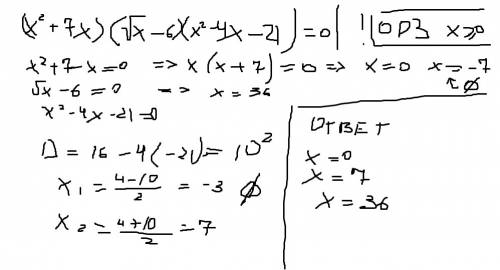 (x² + 7x)(√x - 6)(x² - 4x - 21) = 0 | ! ОДЗ x ≥ 0
x² + 7 - x = 0 => x (x + 7) = 0 => x = 0 x = -7
↑ ∅
√x - 6 = 0 => x = 36
x² - 4x - 21 = 0
D = 16 - 4(-21) = 10²
x₁ = (4-10)/2 = -3 ∅
x₂ = (4+10)/2 = 7
ОТВЕТ
x = 0
x = 7
x = 36